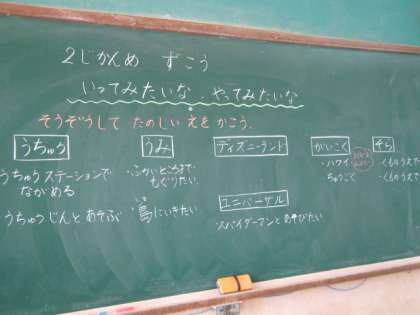 2じかんめ ずこう
いってみたいな やってみたいな
そうぞうして たのしい えを かこう。
うちゅう
うちゅうステーションで
ながめる
うちゅうじんと あそぶ
うみ
・ふかいところまで
もぐりたい。
・島にいきたい
ディズニーランド
ユニバーサル
スパイダーマンと あそびたい
がいこく
・ハワイ
ちゅうごく
そら
・くものうえで
・くものうえで